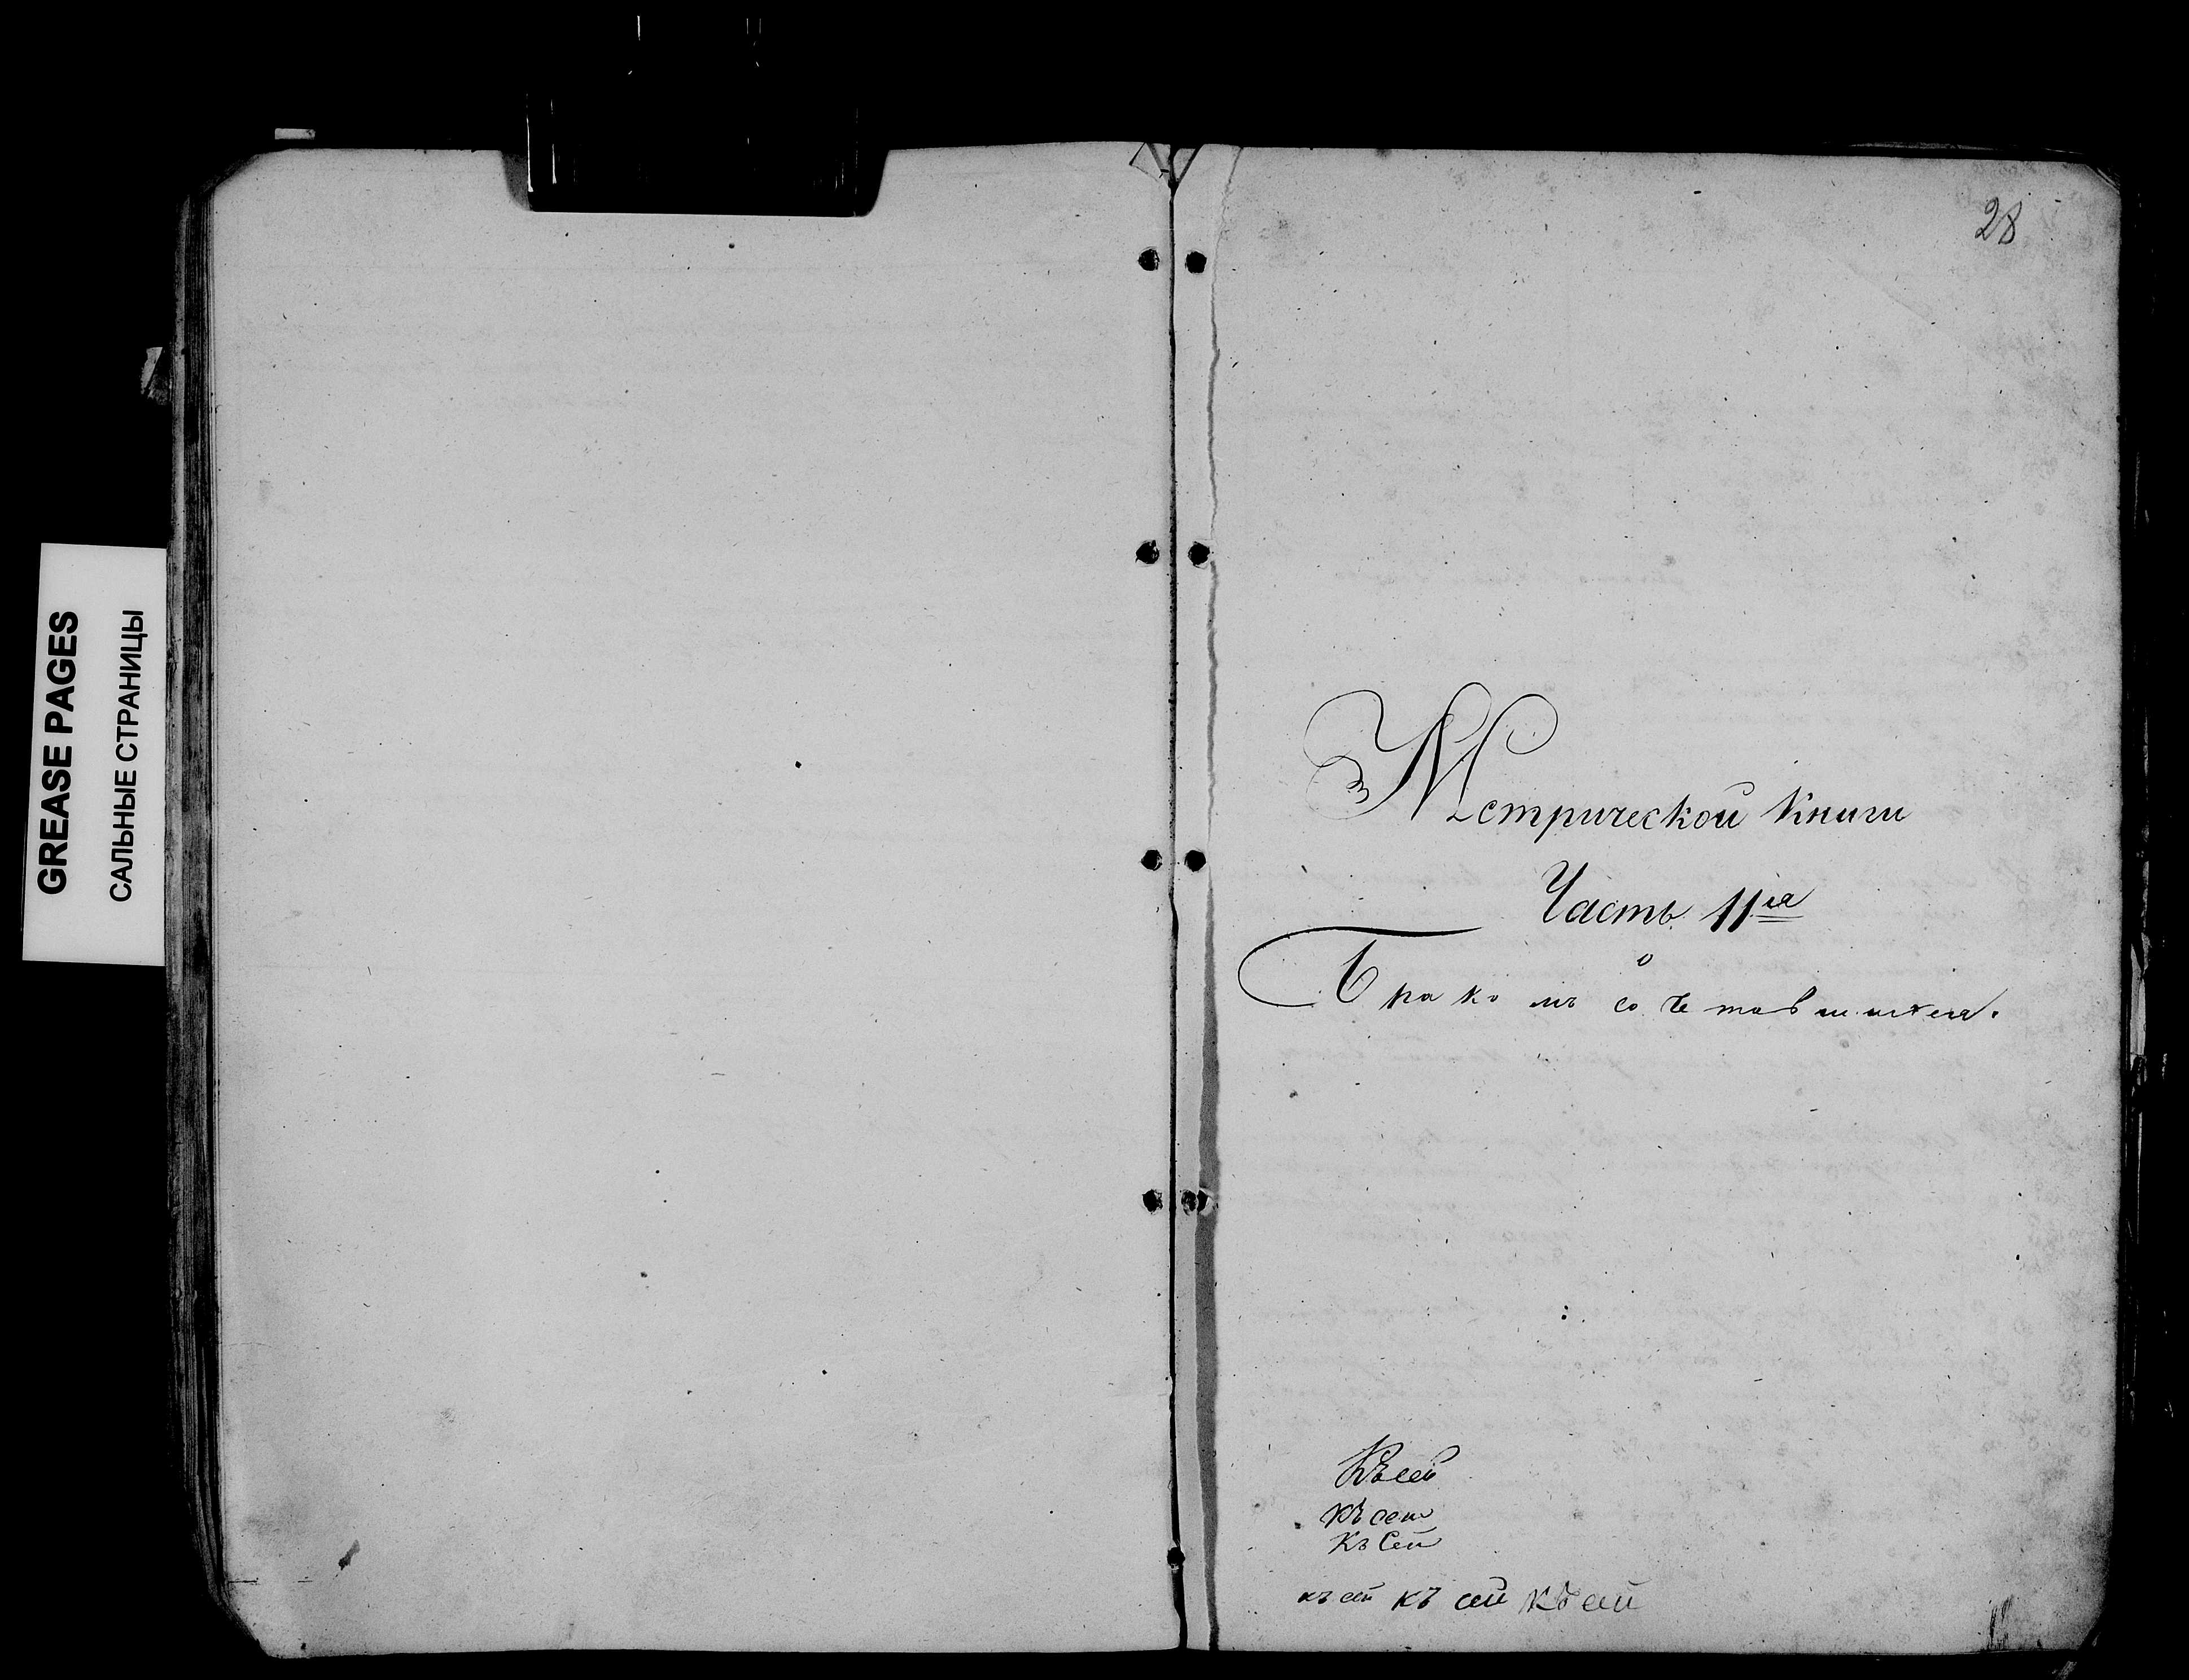 GREASE PAGES
САЛЬНЫЕ СТРАНИЦЫ
28
Метрической Книги
Часть 11ꙗ
о
Бракомъ сочетавшихся.
Къ сей
къ сей
Къ Сей
къ сей къ сей къ сей